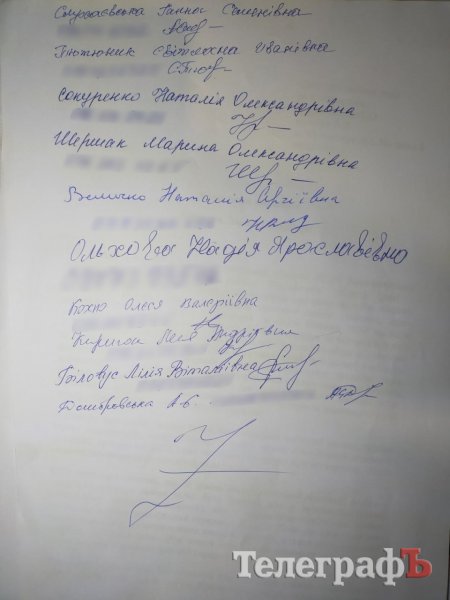 Ганна Семенівна
Тютюнник Світлана Іванівна
Сокуренко Наталія Олександрівна
Шершак Марина Олександрівна
Величко Наталія Сергіївна
Ольхова Надія Ярославівна
Кохно Олеся Валеріївна
Леся Андріївна
Білоус Лілія Віталіївна
Домбровська А.В.
ТелеграфЪ